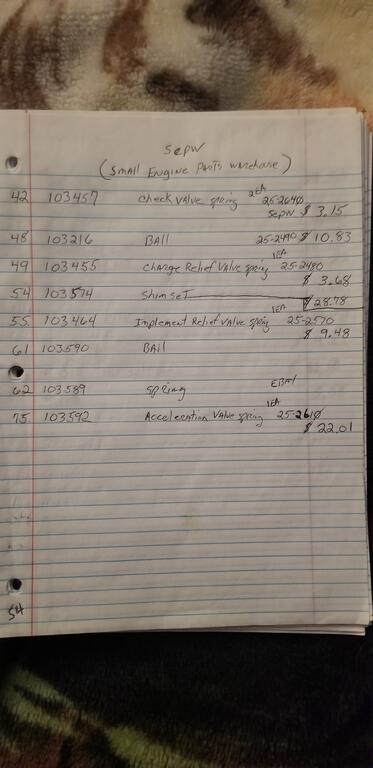 SEPW
(Small Engine Parts Warehouse)
42 103457 Check Valve spring 2EA 25-2640
SEPW $ 3.15
48 103216 BAll 25-2490 $ 10.83
49 103455 Charge Relief Valve spring 1EA 25-2480
$ 3.68
54 103574 Shim set $ 28.78
55 103464 Implement Relief Valve spring 1EA 25-2570
$ 9.48
61 103590 BAll
62 103589 spring EBAY
75 103592 Acceleration Valve spring 1EA 25-2610
$ 22.01
54